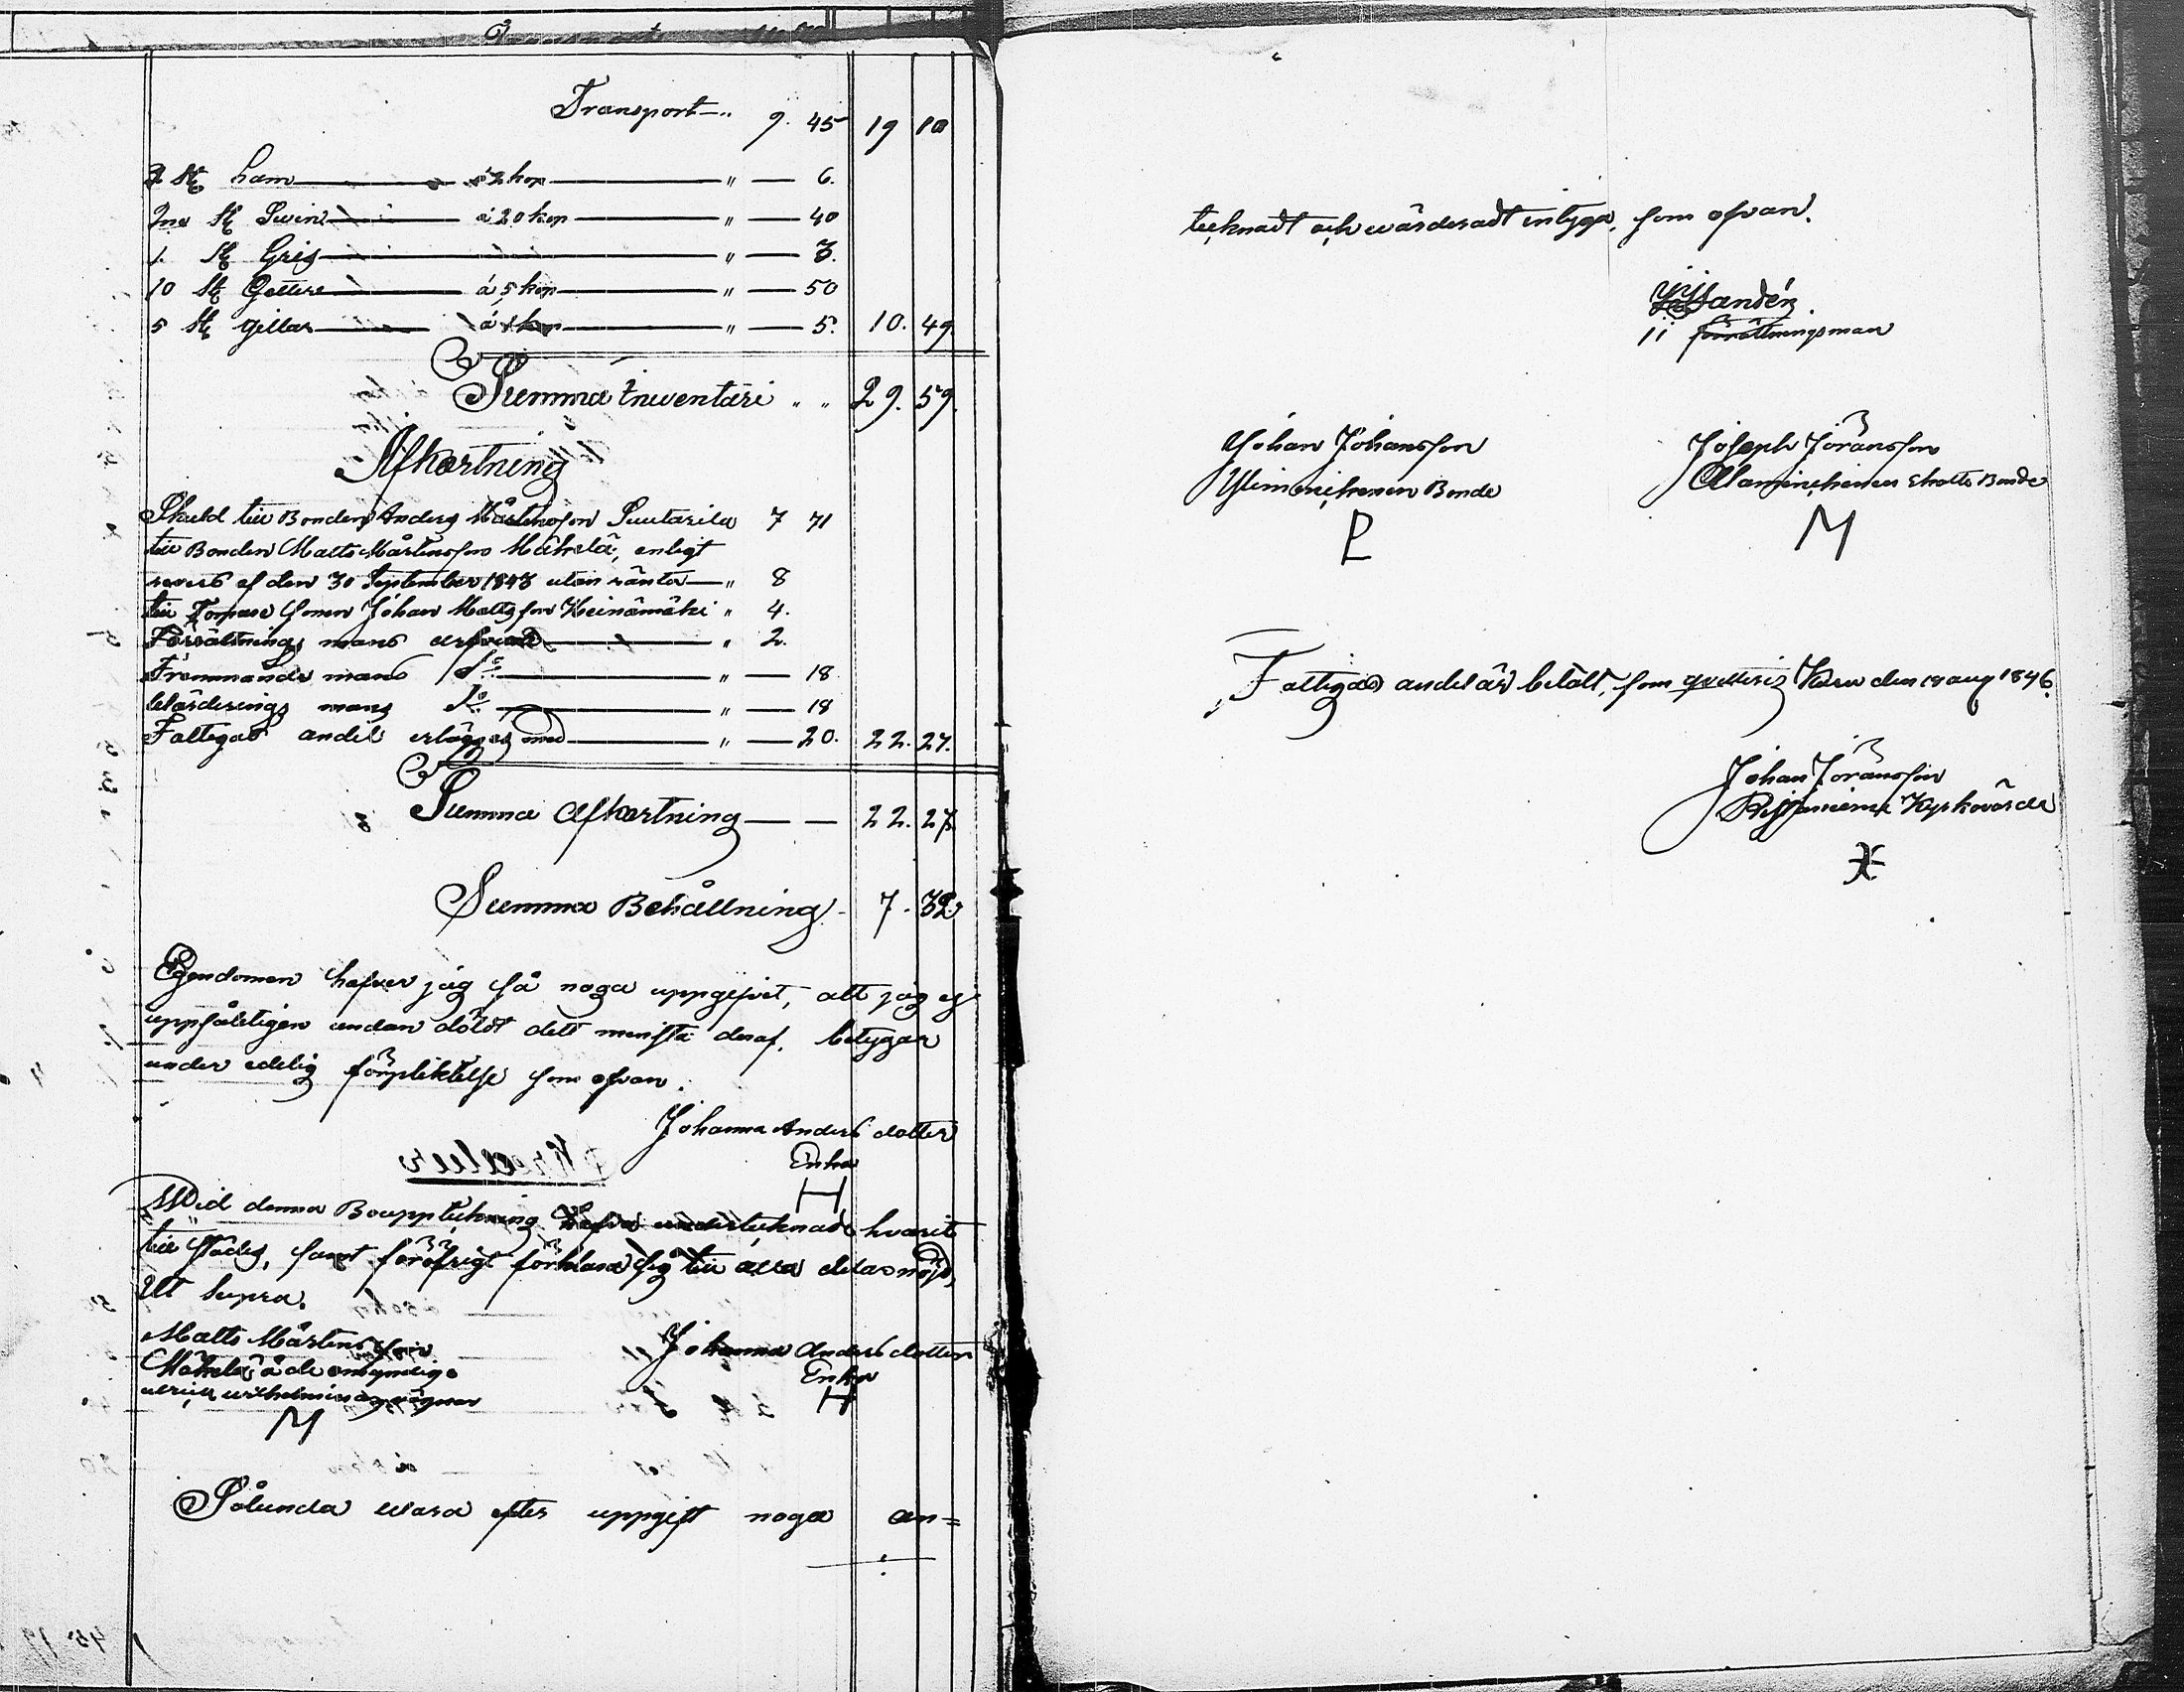 Transport 9. 45 19 10
3 St lam á 2 kop " 6.
2ne St Swin á 20 kop " 40
1. St Gris " 3.
10 St Getter á 5 kop " 50
5 St gillar á 1 kop " 5. 10. 49
Summa Inventari " " 29. 59.
Afkortning
Skuld till Bonden Anders Mårtensson Suutarila 7 71
till Bonden Matts Mårtensson Mähelä, enligt
revers af den 30 September 1843 utan ränta " 8
till Sonen Johan Mattsson Heinämäki " 4.
Förrättnings mans arfvode " 2.
Främmande mans do " 18
Wärderings mans do " 18
Fattigas andel erlägges med " 20. 22. 27.
Summa Afkortning 22. 27.
Summa Behållning 7. 32.
Egendomen hafver jag så noga uppgifvit, att jag ej
uppsåteligen undan döldt dett minsta deraf, betygar
under edelig förpliktelse som ofvan.
Johanna Anders dotter
Enka
H
Wid denna Bouppteckning hafva undertecknade hvarit
till städes, samt föröfrigt förklara sig till alla delar nöjd,
Ut Supra.
Matts Mårtensson Johanna Anders dotter
Mähelä å de omyndige Enka
ulrica wilhelmina wägnar H
M
Sålunda wara efter uppgift noga an=
tecknadt och wärderadt intyga, som ofvan.
förrättningsman
Johan Johansson Joseph Jöransson
Ylimenehenen Bonde Alamenehenen Matts Bonde
P M
Fattigas andel är betalt, som qvitteris den 18 aug 1846.
Johan Jöransson
Kyrkovärde